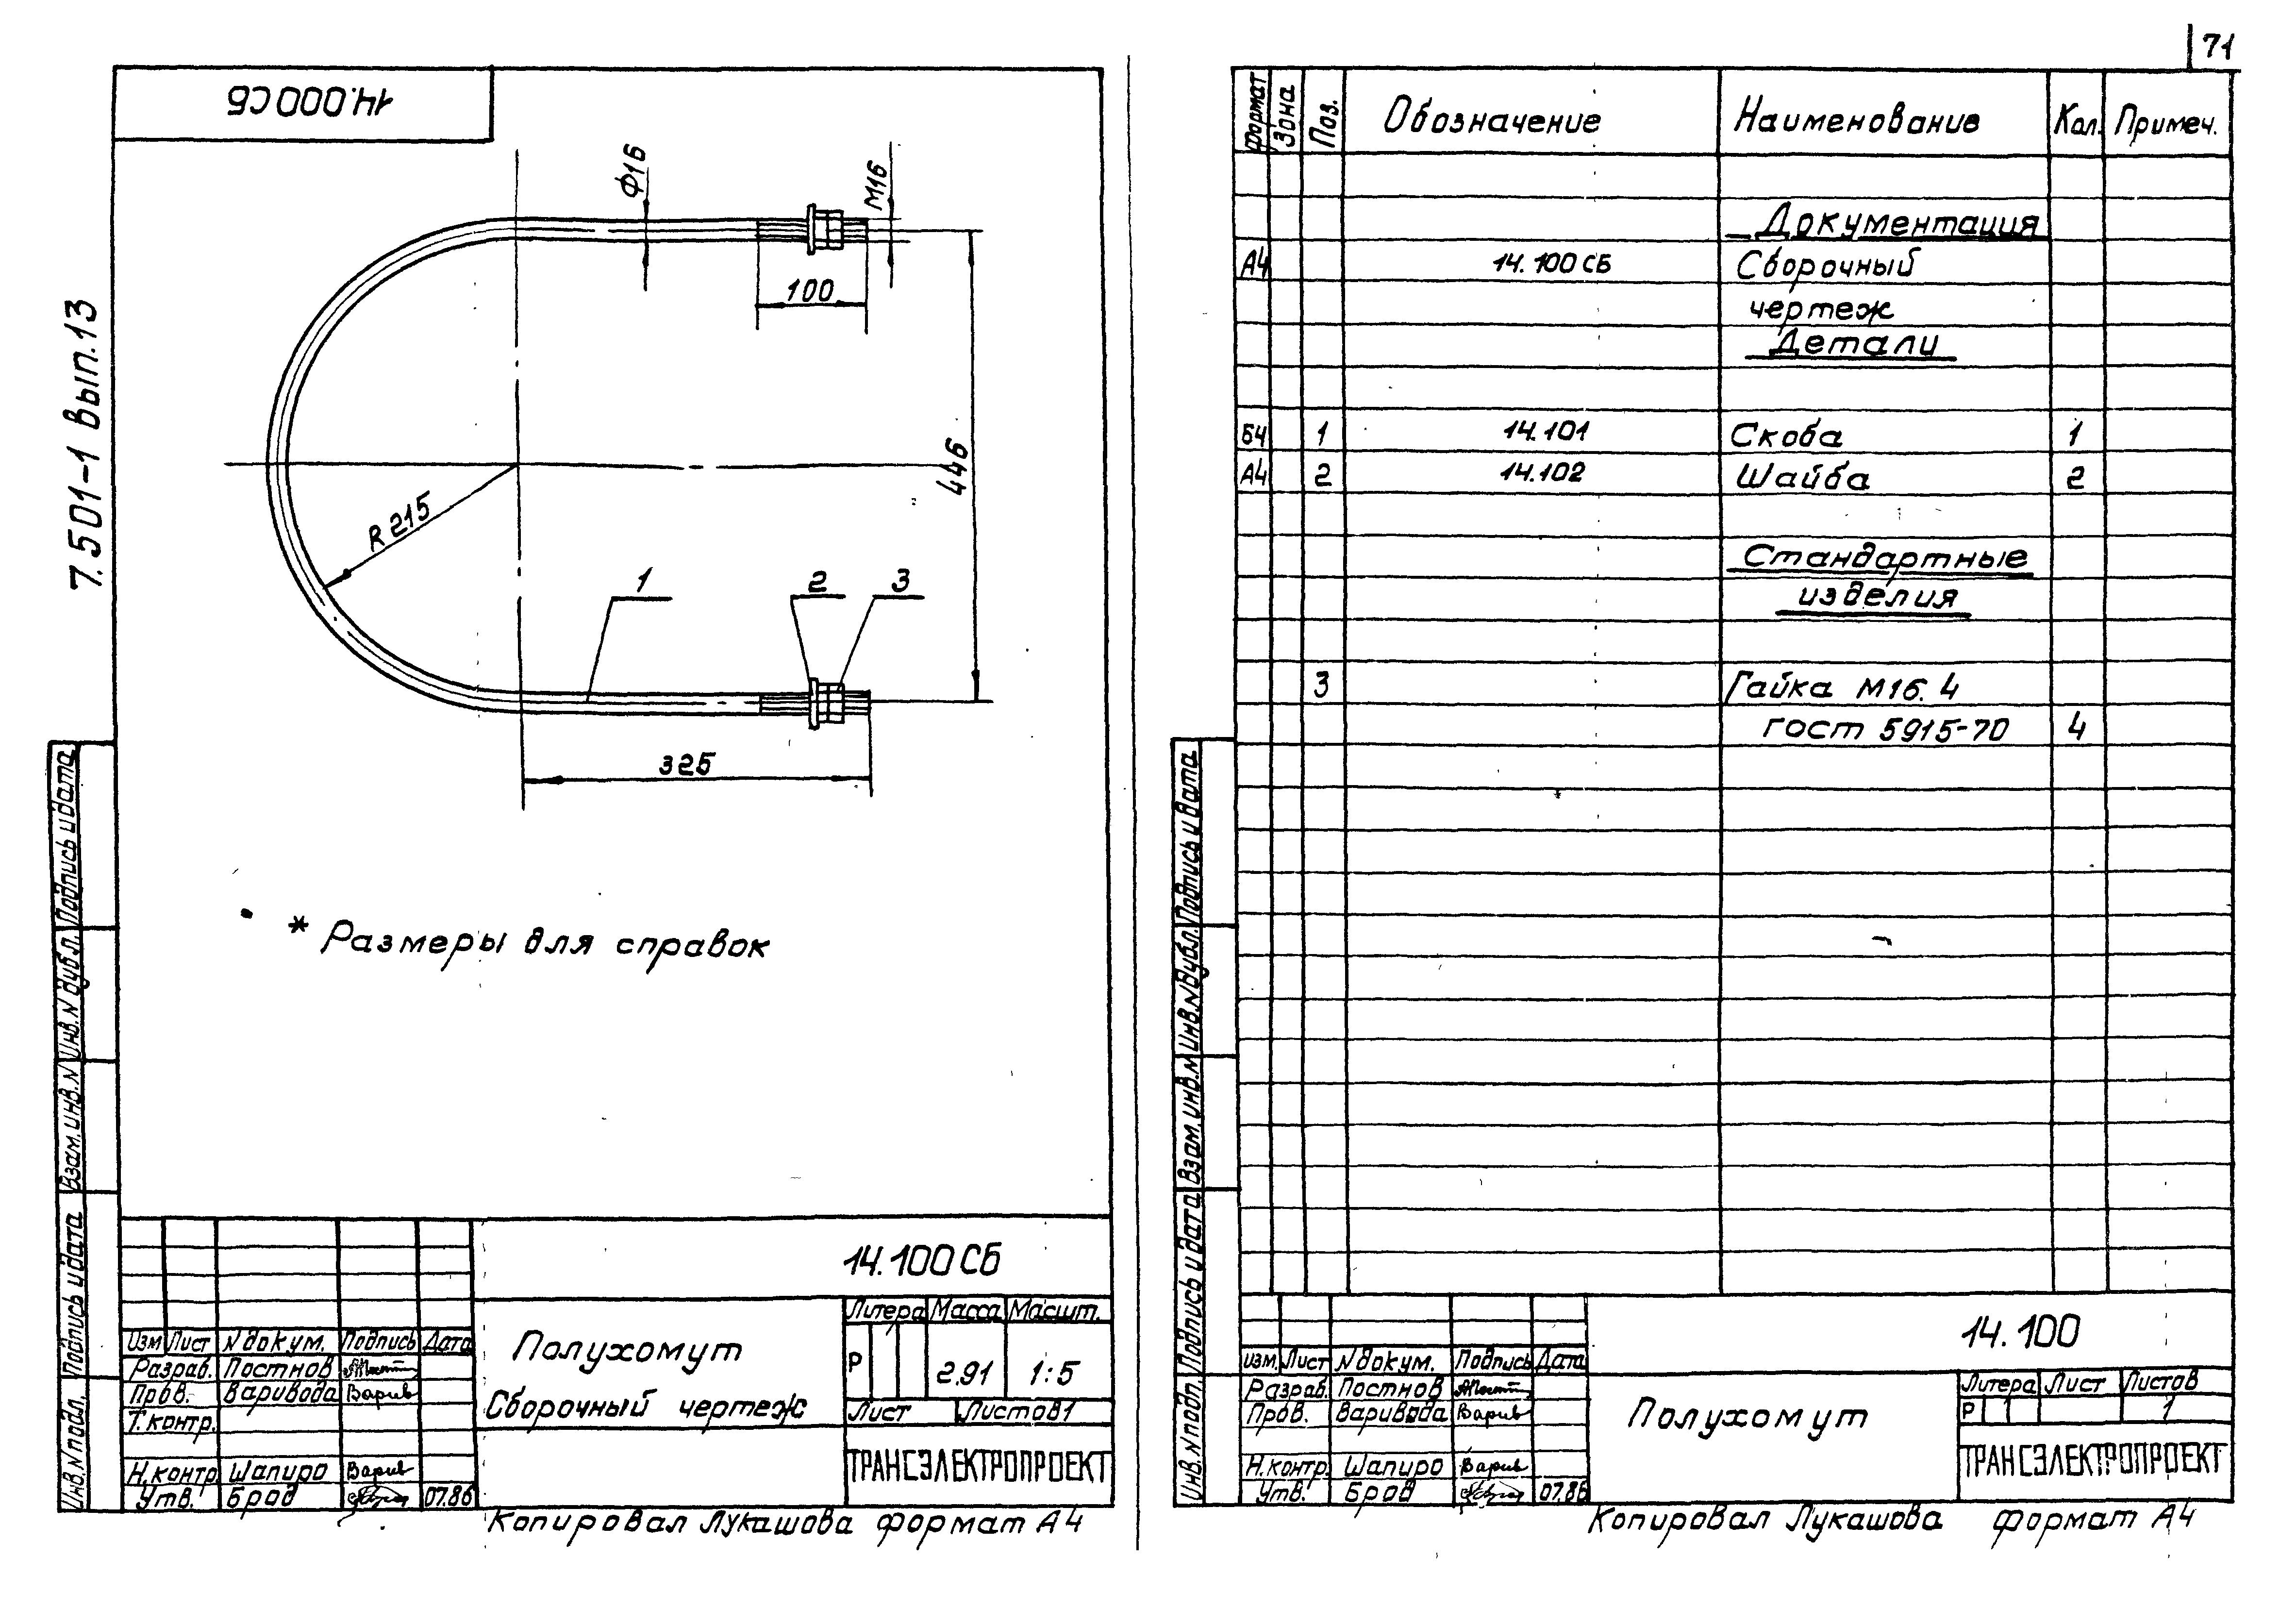 71
14.000 СБ
7.501-1 Вып.13
Ф16
М16
100
446
R 215
1
2
3
325
* Размеры для справок
Подпись и дата
Инв.N дубл.
Взам.инв.N
Подпись и дата
Инв.N подл.
14.100 СБ
Литера Масса Масшт.
Р 2.91 1:5
Лист Листов 1
Полухомут
Сборочный чертеж
ТРАНСЭЛЕКТРОПРОЕКТ
Изм Лист N докум. Подпись Дата
Разраб. Постнов
Пров. Варивода Варив
Т.контр.
Н.контр. Шапиро Варив
Утв. Брод 07.86
Копировал Лукашова формат А4
Формат Зона Поз. Обозначение Наименование Кол. Примеч.
Документация
А4 14.100 СБ Сборочный
чертеж
Детали
Б4 1 14.101 Скоба 1
А4 2 14.102 Шайба 2
Стандартные
изделия
3 Гайка М16.4
ГОСТ 5915-70 4
Подпись и дата
Инв.N дубл.
Взам.инв.N
Подпись и дата
Инв.N подл.
14.100
Изм. Лист N докум. Подпись Дата
Разраб. Постнов
Пров. Варивода Варив
Н.контр. Шапиро Варив
Утв. Брод 07.86
Полухомут
Литера Лист Листов
Р 1
ТРАНСЭЛЕКТРОПРОЕКТ
Копировал Лукашова формат А4